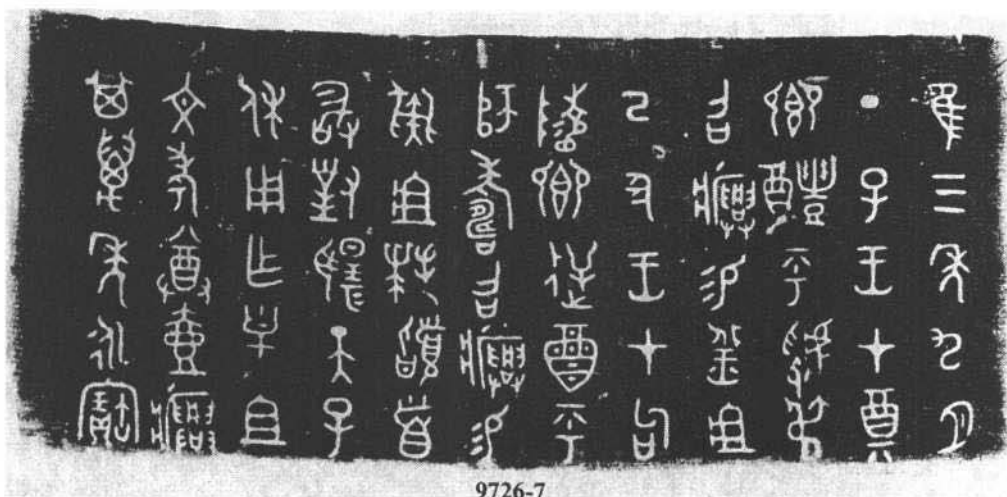 隹三年九月
丁子王才奠
鄉醴乎虢弔
召𤼈易羔俎
己丑王才句
陵鄉逆酉乎
師壽召𤼈易
彘俎拜𩒨首
敢對揚天子
休用乍皇且
文考尊壺𤼈
其萬年永寶
9726-7